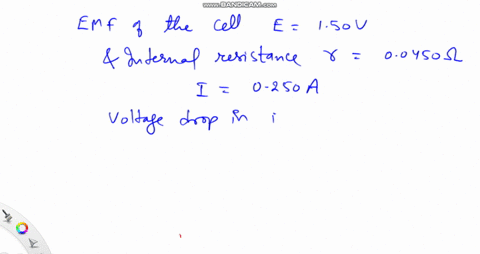 WWW.BANDICAM.COM
EMF of the cell E = 1.50V
& Internal resistance r = 0.0450Ω
I = 0.250A
Voltage drop in i